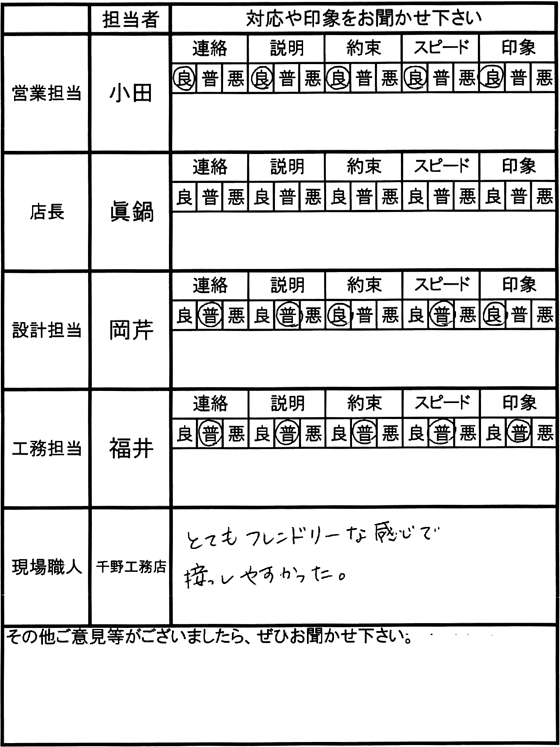 担当者 対応や印象をお聞かせ下さい
営業担当 小田
連絡 説明 約束 スピード 印象
良 普 悪 良 普 悪 良 普 悪 良 普 悪 良 普 悪
店長 眞鍋
連絡 説明 約束 スピード 印象
良 普 悪 良 普 悪 良 普 悪 良 普 悪 良 普 悪
設計担当 岡芹
連絡 説明 約束 スピード 印象
良 普 悪 良 普 悪 良 普 悪 良 普 悪 良 普 悪
工務担当 福井
連絡 説明 約束 スピード 印象
良 普 悪 良 普 悪 良 普 悪 良 普 悪 良 普 悪
現場職人 千野工務店
とてもフレンドリーな感じで
接っしやすかった。
その他ご意見等がございましたら、ぜひお聞かせ下さい。